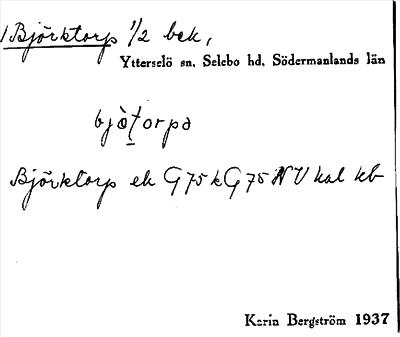 1 Björktorp 1/2 bek,
Ytterselö sn. Selebo hd. Södermanlands län
bjò̱ṭorpa
Björktorp ek G 75 k G 75 N V kal kb
Karin Bergström 1937